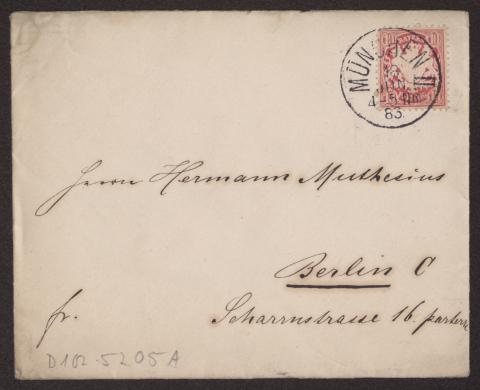 MÜNCHEN II
JUN.
4-5 Nm
83.
10 10
Herrn Hermann Muthesius
Berlin C
Scharrnstrasse 16. parterre
fr.
D102-5205A